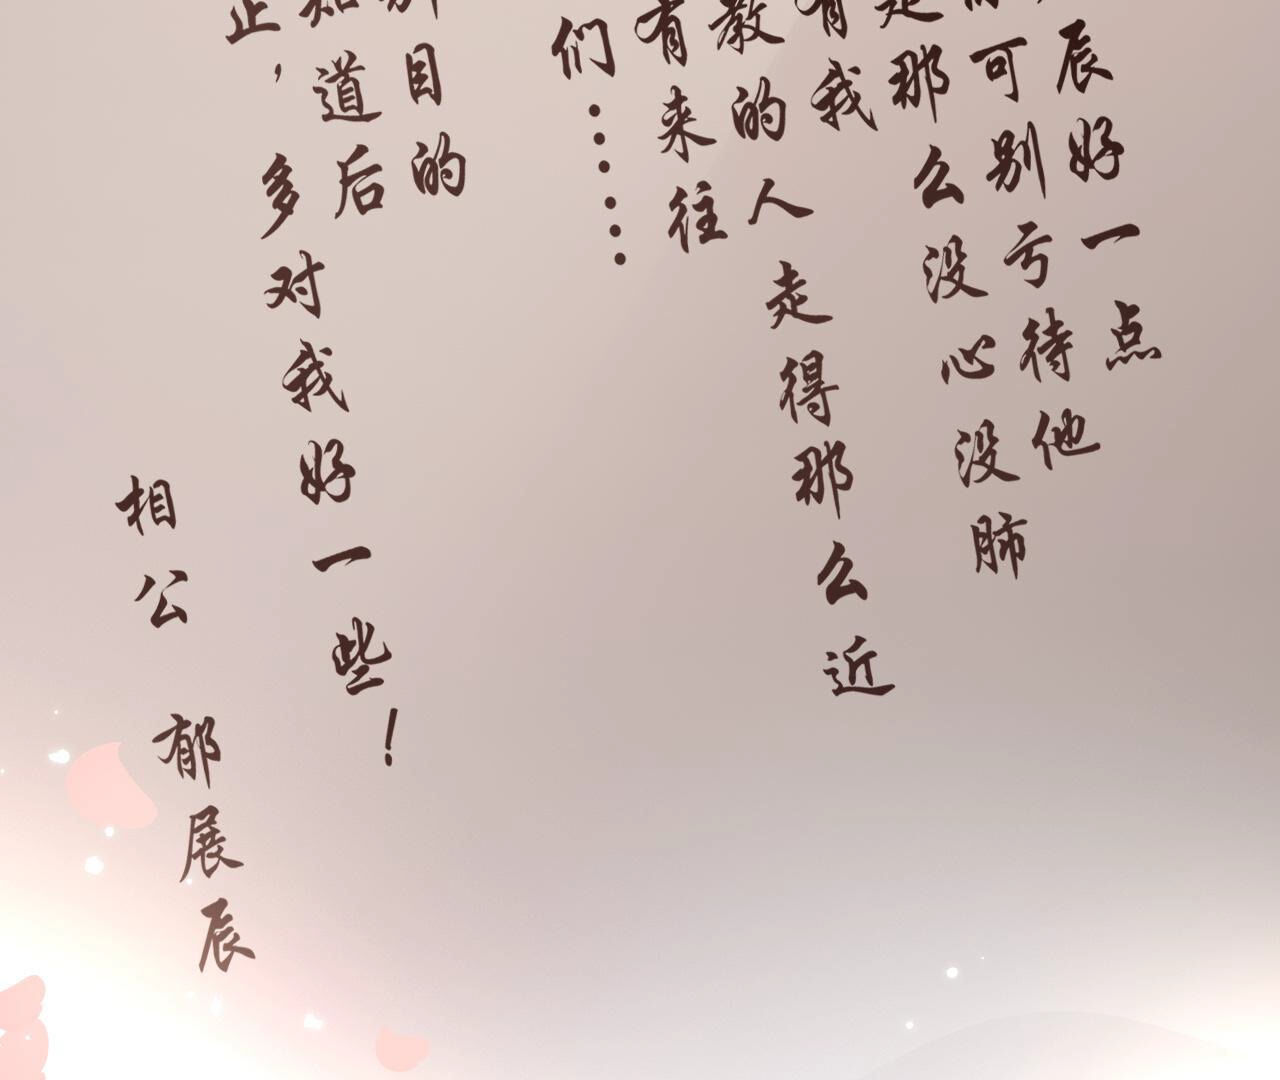 辰好一点
可别亏待他
走那么没心没肺
有我
教的人走得那么近
有来往
们……
别目的
知道后
正，多对我好一些！
相公 郁展辰